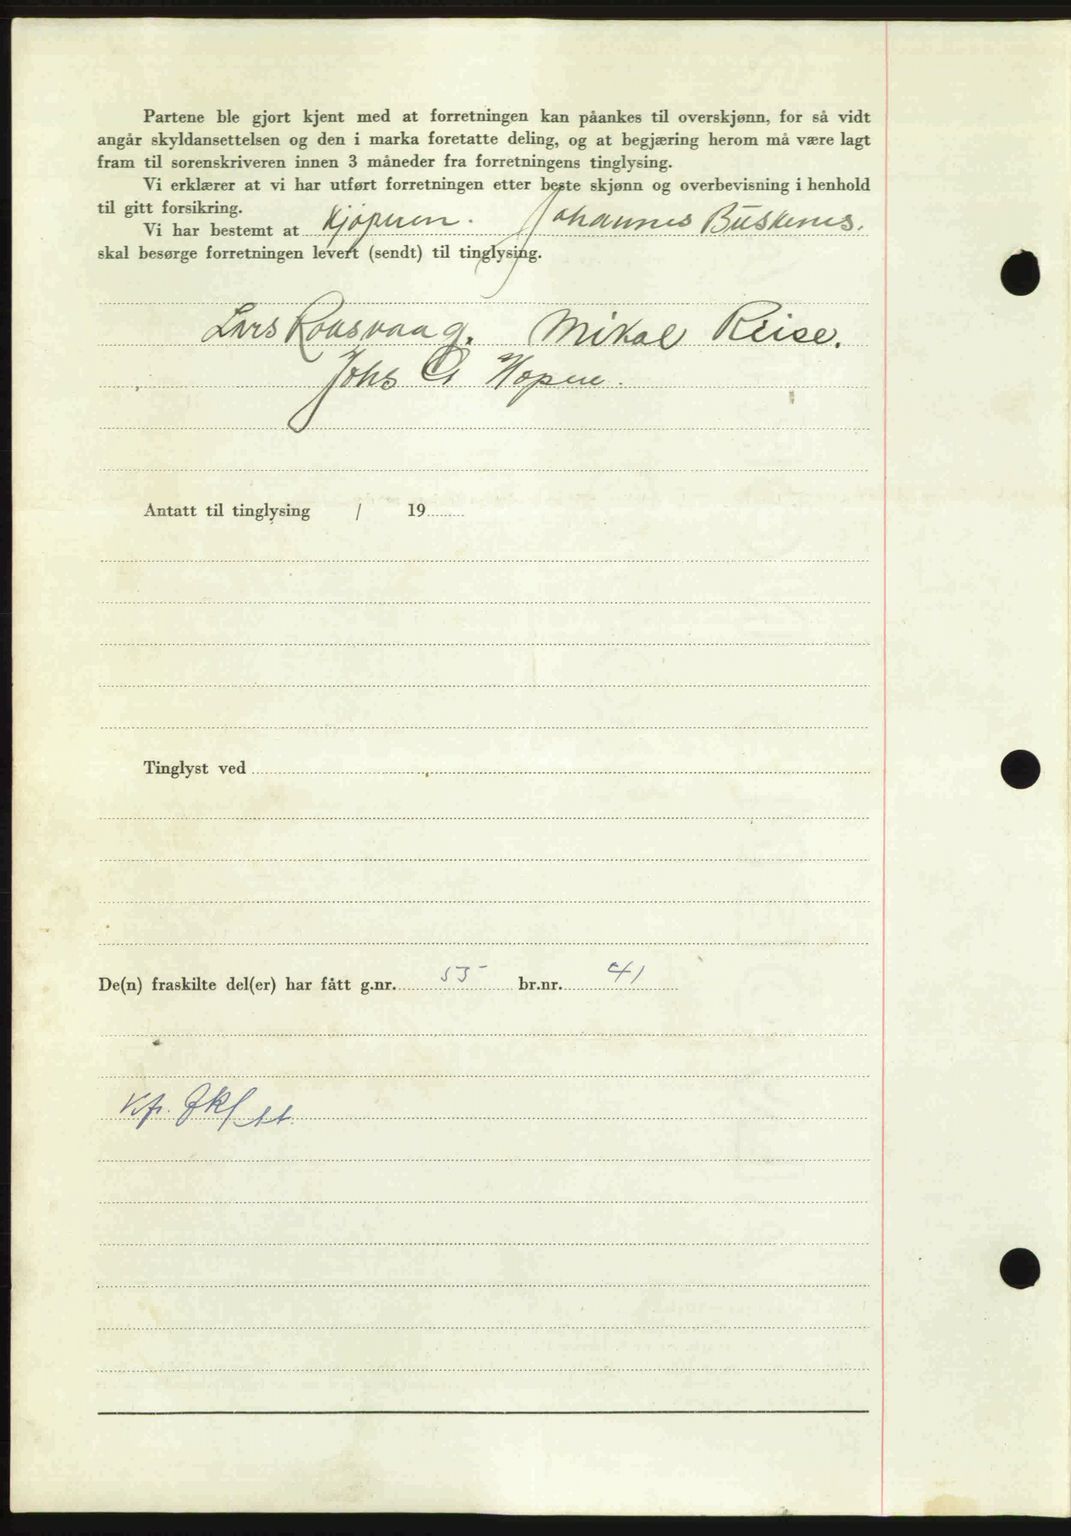 Partene ble gjort kjent med at forretningen kan påankes til overskjønn, for så vidt
angår skyldansettelsen og den i marka foretatte deling, og at begjæring herom må være lagt
fram til sorenskriveren innen 3 måneder fra forretningens tinglysing.
Vi erklærer at vi har utført forretningen etter beste skjønn og overbevisning i henhold
til gitt forsikring.
Vi har bestemt at kjøperen. Johannes Buskenes.
skal besørge forretningen levert (sendt) til tinglysing.
Lars Roksvaag. Mikal Reise.
Johs G Hopen.
Antatt til tinglysing / 19
Tinglyst ved
De(n) fraskilte del(er) har fått g.nr. 55 br.nr. 41